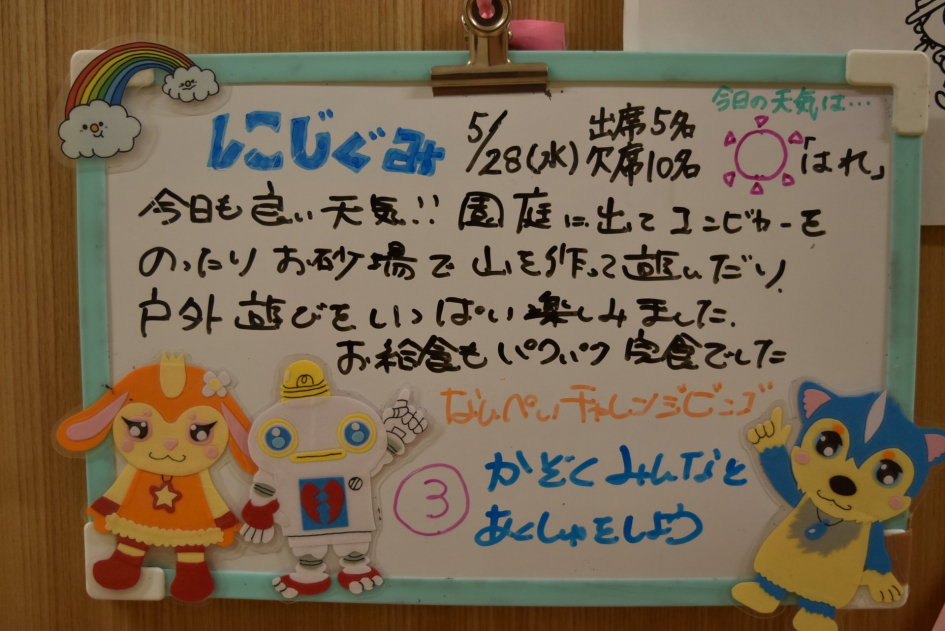 にじぐみ 5/28(水) 出席5名 欠席10名
今日の天気は…
「はれ」
今日も良い天気!! 園庭に出てコンビカーを
のったりお砂場で山を作って遊んだり、
戸外遊びをいっぱい楽しみました。
お給食もパクパク完食でした
なんぺいチャレンジビンゴ
③ かぞくみんなと
あくしゅをしよう